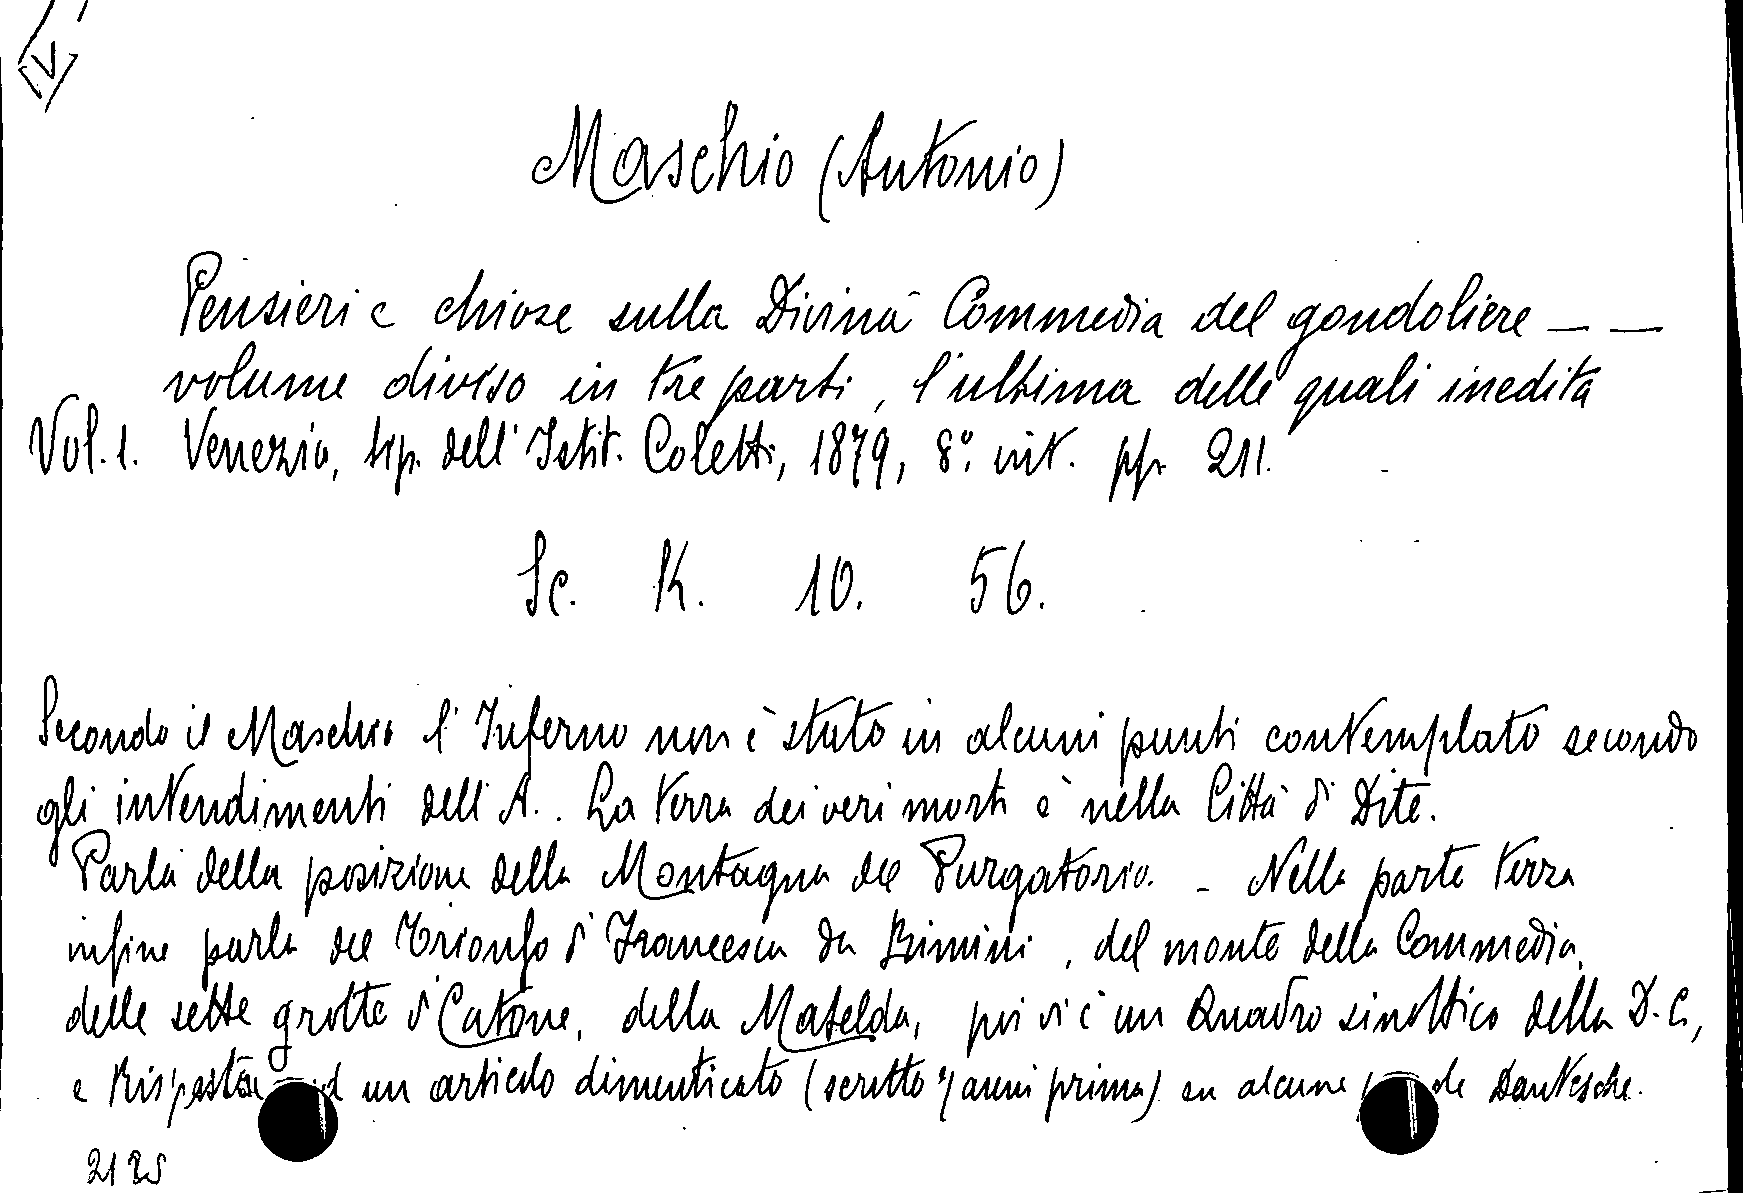 Maschio (Antonio)
Pensieri e chiose sulla Divina Commedia del gondoliere — —
volume diviso in tre parti, l'ultima delle quali inedita
Vol. 1. Venezia, tip. dell'Istit. Coletti, 1879, 8°. int. pp. 211.
Sc. K. 10. 56.
Secondo il Maschio l'Inferno non è stato in alcuni punti contemplato secondo
gli intendimenti dell'A.. La terra dei veri morti è nella Città di Dite.
Parla della posizione della Montagna del Purgatorio. - Nella parte terza
infine parla del Trionfo di Francesca da Rimini, del monte della Commedia,
delle sette grotte di Catone, della Matelda, poi vi è un Quadro sinottico della D. C.,
e Risposta ad un articolo dimenticato (scritto 4 anni prima) su alcune Dantesche.